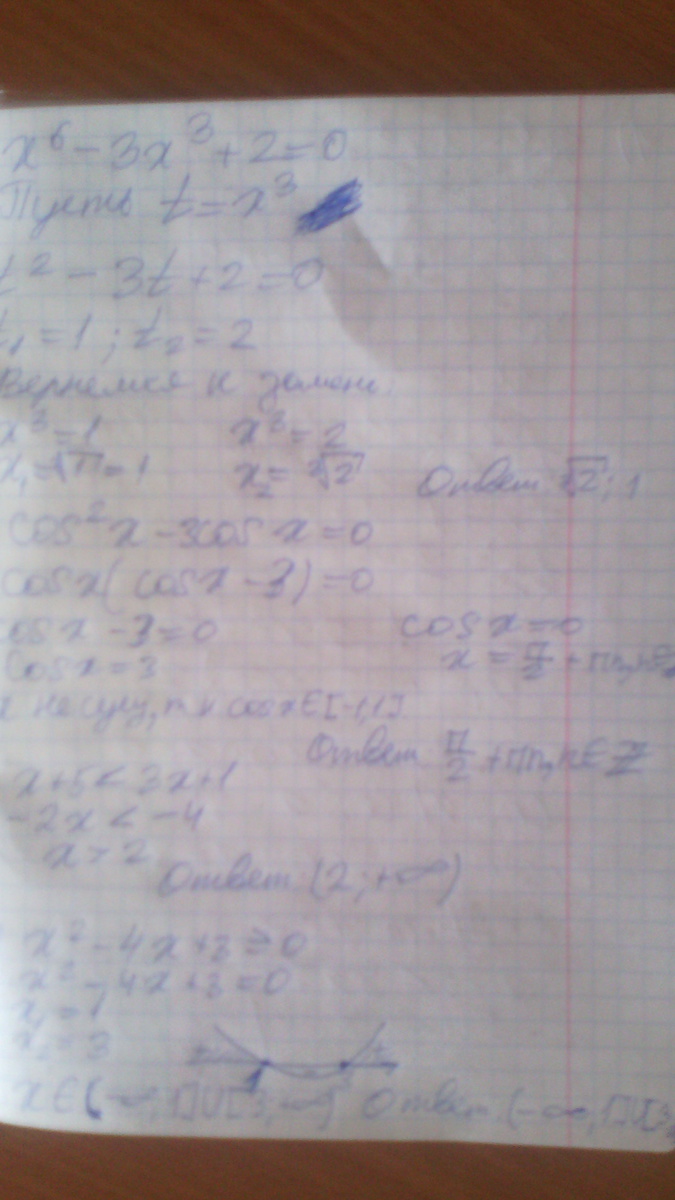 x⁶ - 3x³ + 2 = 0
Пусть t = x³
t² - 3t + 2 = 0
t₁ = 1 ; t₂ = 2
Вернемся к замене
x³ = 1 x³ = 2
x₁ = ∛1 = 1 x₂ = ∛2 Ответ ∛2 ; 1
cos²x - 3cos x = 0
cosx( cosx - 3) = 0
cosx - 3 = 0 cos x = 0
cosx = 3 x = π/2 + πn, n∈Z
cosx∈[-1,1]
Ответ π/2 + πn, n∈Z
x+5 < 3x+1
-2x < -4
x > 2
Ответ (2; +∞)
x² - 4x + 3 ≥ 0
x² - 4x + 3 = 0
x₁ = 1
x₂ = 3
+ +
1
x∈(-∞,1]U[3,∞) Ответ (-∞,1]U[3,